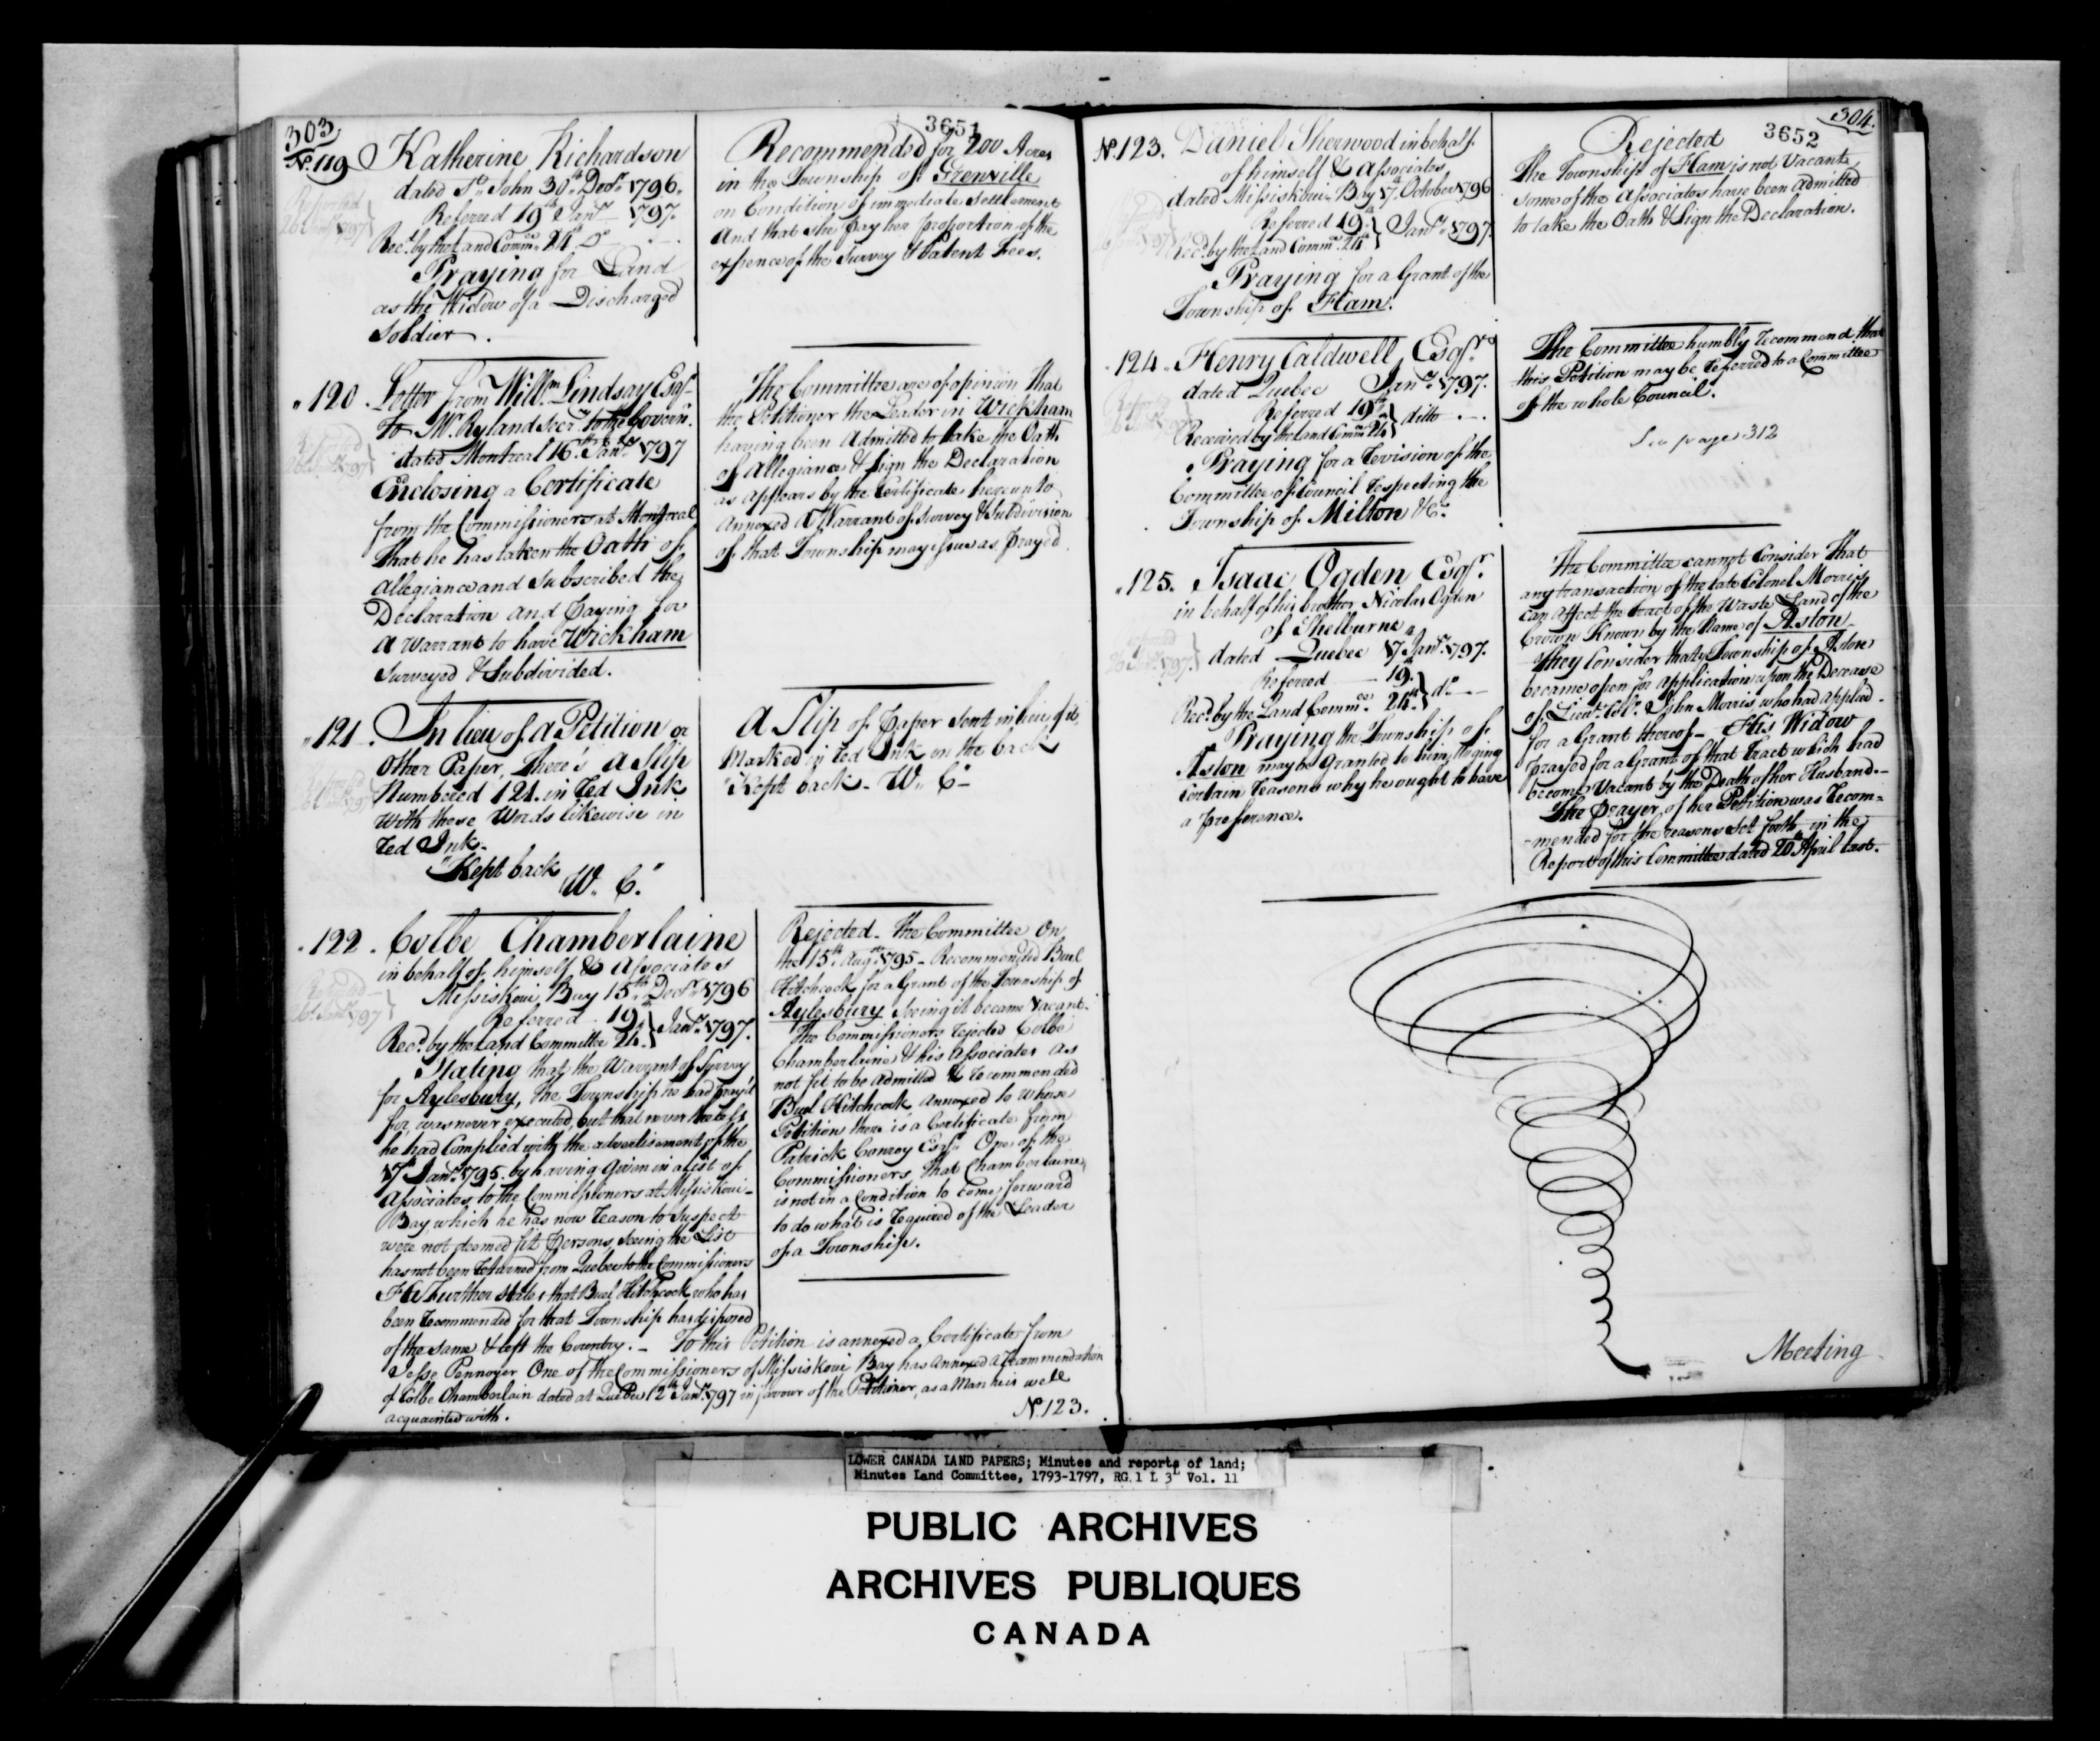 303
3651
No. 119 Katherine Richardson
dated St. John 30th Decr. 1796.
Referred 19th Jany. 1797.
Recd. by the Land Commee. 24th Do.
Praying for Land
as the Widow of a Discharged
Soldier.
Recommended for 200 Acres
in the Township of Grenville
on Condition of immediate Settlement
And that she pay her proportion of the
expence of the Survey & Patent Fees.
" 120. Letter from Willm. Lindsay Esqr.
To Mr. Ryland Secry. to the Governr.
dated Montreal 16th Jany. 1797
Enclosing a Certificate
from the Commissioners at Montreal
That he has taken the Oath of
Allegiance and Subscribed the
Declaration and Praying for
a Warrant to have Wickham
Surveyed & Subdivided.
The Committee are of opinion that
the Petitioner the Leader in Wickham
having been Admitted to take the Oath
of Allegiance & Sign the Declaration
as appears by the Certificate hereunto
Annexed A Warrant of Survey & Subdivision
of that Township may issue as prayed.
" 121. In lieu of a Petition or
Other Paper, There's a Slip
Numbered 121. in Red Ink
with these Words likewise in
Red Ink.
"Kept back
W. C."
A Slip of Paper sent in lieu of it,
Marked in Red Ink on the back
"Kept back - W. C"
" 122. Colbe Chamberlaine
in behalf of himself & Associates
Missiskoui Bay 15th Decr. 1796
Referred 19th } Jany. 1797.
Recd. by the Land Committee 24th }
Stating that the Warrant of Survey
for Aylesbury, the Township he had pray'd
for, was never executed, but that nevertheless
he had Complied with the advertisement of the
17th Jany. 1795. by having given in a list of
Associates to the Commissioners at Missiskoui-
Bay, which he has now Reason to Suspect
were not deemed fit Persons, Seeing the List
has not been Returned from Quebec to the Commissioners
He Further states that Buel Hitchcock who has
been Recommended for that Township has disposed
of the same & left the Country. - To this Petition is annexed a Certificate from
Jesse Pennoyer One of the Commissioners of Missiskoui Bay has Annexed a Recommendation
of Colbe Chamberlain dated at Quebec 12th Jany. 1797 in favour of the Petitioner, as a Man he is well
acquainted with.
Rejected - The Committee On
the 15th Augst. 1795 - Recommended Buel
Hitchcock for a Grant of the Township of
Aylesbury Seeing it became Vacant.
The Commissioners Rejected Colbe
Chamberlaine & his Associates As
not fit to be Admitted & Recommended
Buel Hitchcock, Annexed to whose
Petition there is a Certificate from
Patrick Conroy Esqr. One of the
Commissioners, That Chamberlaine
is not in a Condition to Come forward
to do what is Required of the Leader
of a Township.
No. 123.
304.
3652
No. 123. Daniel Sherwood in behalf
of himself & Associates
dated Missiskoui Bay 17th October 1796
Referred 19th } Jany. 1797.
Recd. by the Land Commee. 24th }
Praying for a Grant of the
Township of Ham.
Rejected
The Township of Ham is not Vacant
some of the Associates have been Admitted
to take the Oath & Sign the Declaration.
" 124. Henry Caldwell, Esqre.
dated Quebec Jany. 1797.
Referred 19th } ditto
Received by the Land Commee. 24 }
Praying for a Revision of the
Committee of Council respecting the
Township of Milton &c.
The Committee humbly Recommend that
this Petition may be Referred to a Committee
of the whole Council.
See page 312
" 125. Isaac Ogden Esqr.
in behalf of his brother Nicolas Ogden
of Shelburne
dated Quebec 17 Jany. 1797.
Referred 19. } do
Recd. by the Land Commee. 24th }
Praying the Township of
Aston may be Granted to him, Alleging
certain Reasons why he ought to have
a preference.
The Committee cannot Consider That
any transaction of the late Colonel Morris
can affect the tract of the Waste Land of the
Crown Known by the Name of Aston
They Consider that ye Township of Aston
became open for Application upon the Decease
of Lieut. Colo. John Morris, who had applied
for a Grant thereof - His Widow
prayed for a Grant of that Tract which had
become Vacant by the Death of her Husband. -
The prayer of her Petition was Recom=
=mended for the reasons Set forth in the
Report of this Committee dated 20th April last.
Meeting
LOWER CANADA LAND PAPERS; Minutes and reports of land;
Minutes Land Committee, 1793-1797, RG 1 L 3L Vol. 11
PUBLIC ARCHIVES
ARCHIVES PUBLIQUES
CANADA